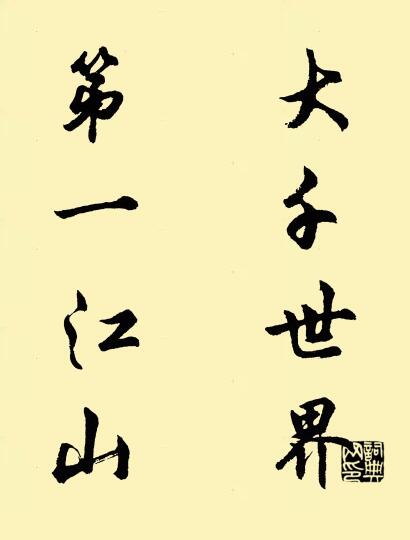 大千世界
第一江山